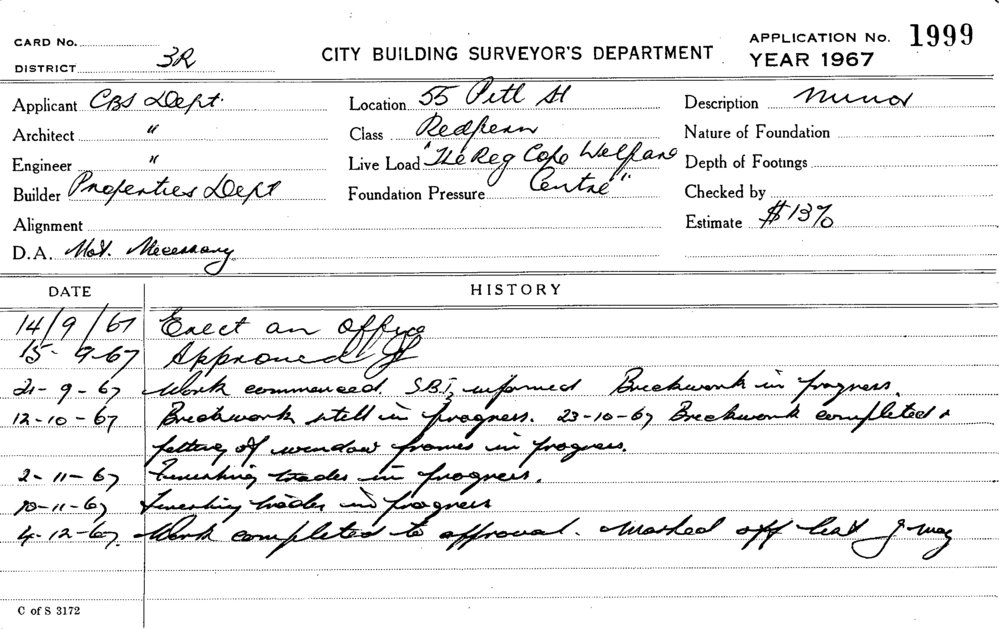 CARD No. CITY BUILDING SURVEYOR'S DEPARTMENT APPLICATION No. 1999
DISTRICT 3R YEAR 1967
Applicant CBS Dept. Location 55 Pitt St Description Minor
Architect " Class Redfern Nature of Foundation
Engineer " Live Load "The Reg Cope Welfare Depth of Footings
Builder Properties Dept Foundation Pressure Centre" Checked by
Alignment Estimate
D.A. Not. Necessary
DATE HISTORY
14/9/67 Erect an office
15-9-67 Approved
21-9-67 Work commenced. S.B.I. informed Brickwork in progress
12-10-67 Brickwork still in progress. 23-10-67 Brickwork completed &
fitting of window frames in progress.
2-11-67 Finishing trades in progress.
10-11-67 Finishing trades in progress
4-12-67. Work completed to approval. Marked off
C of S 3172